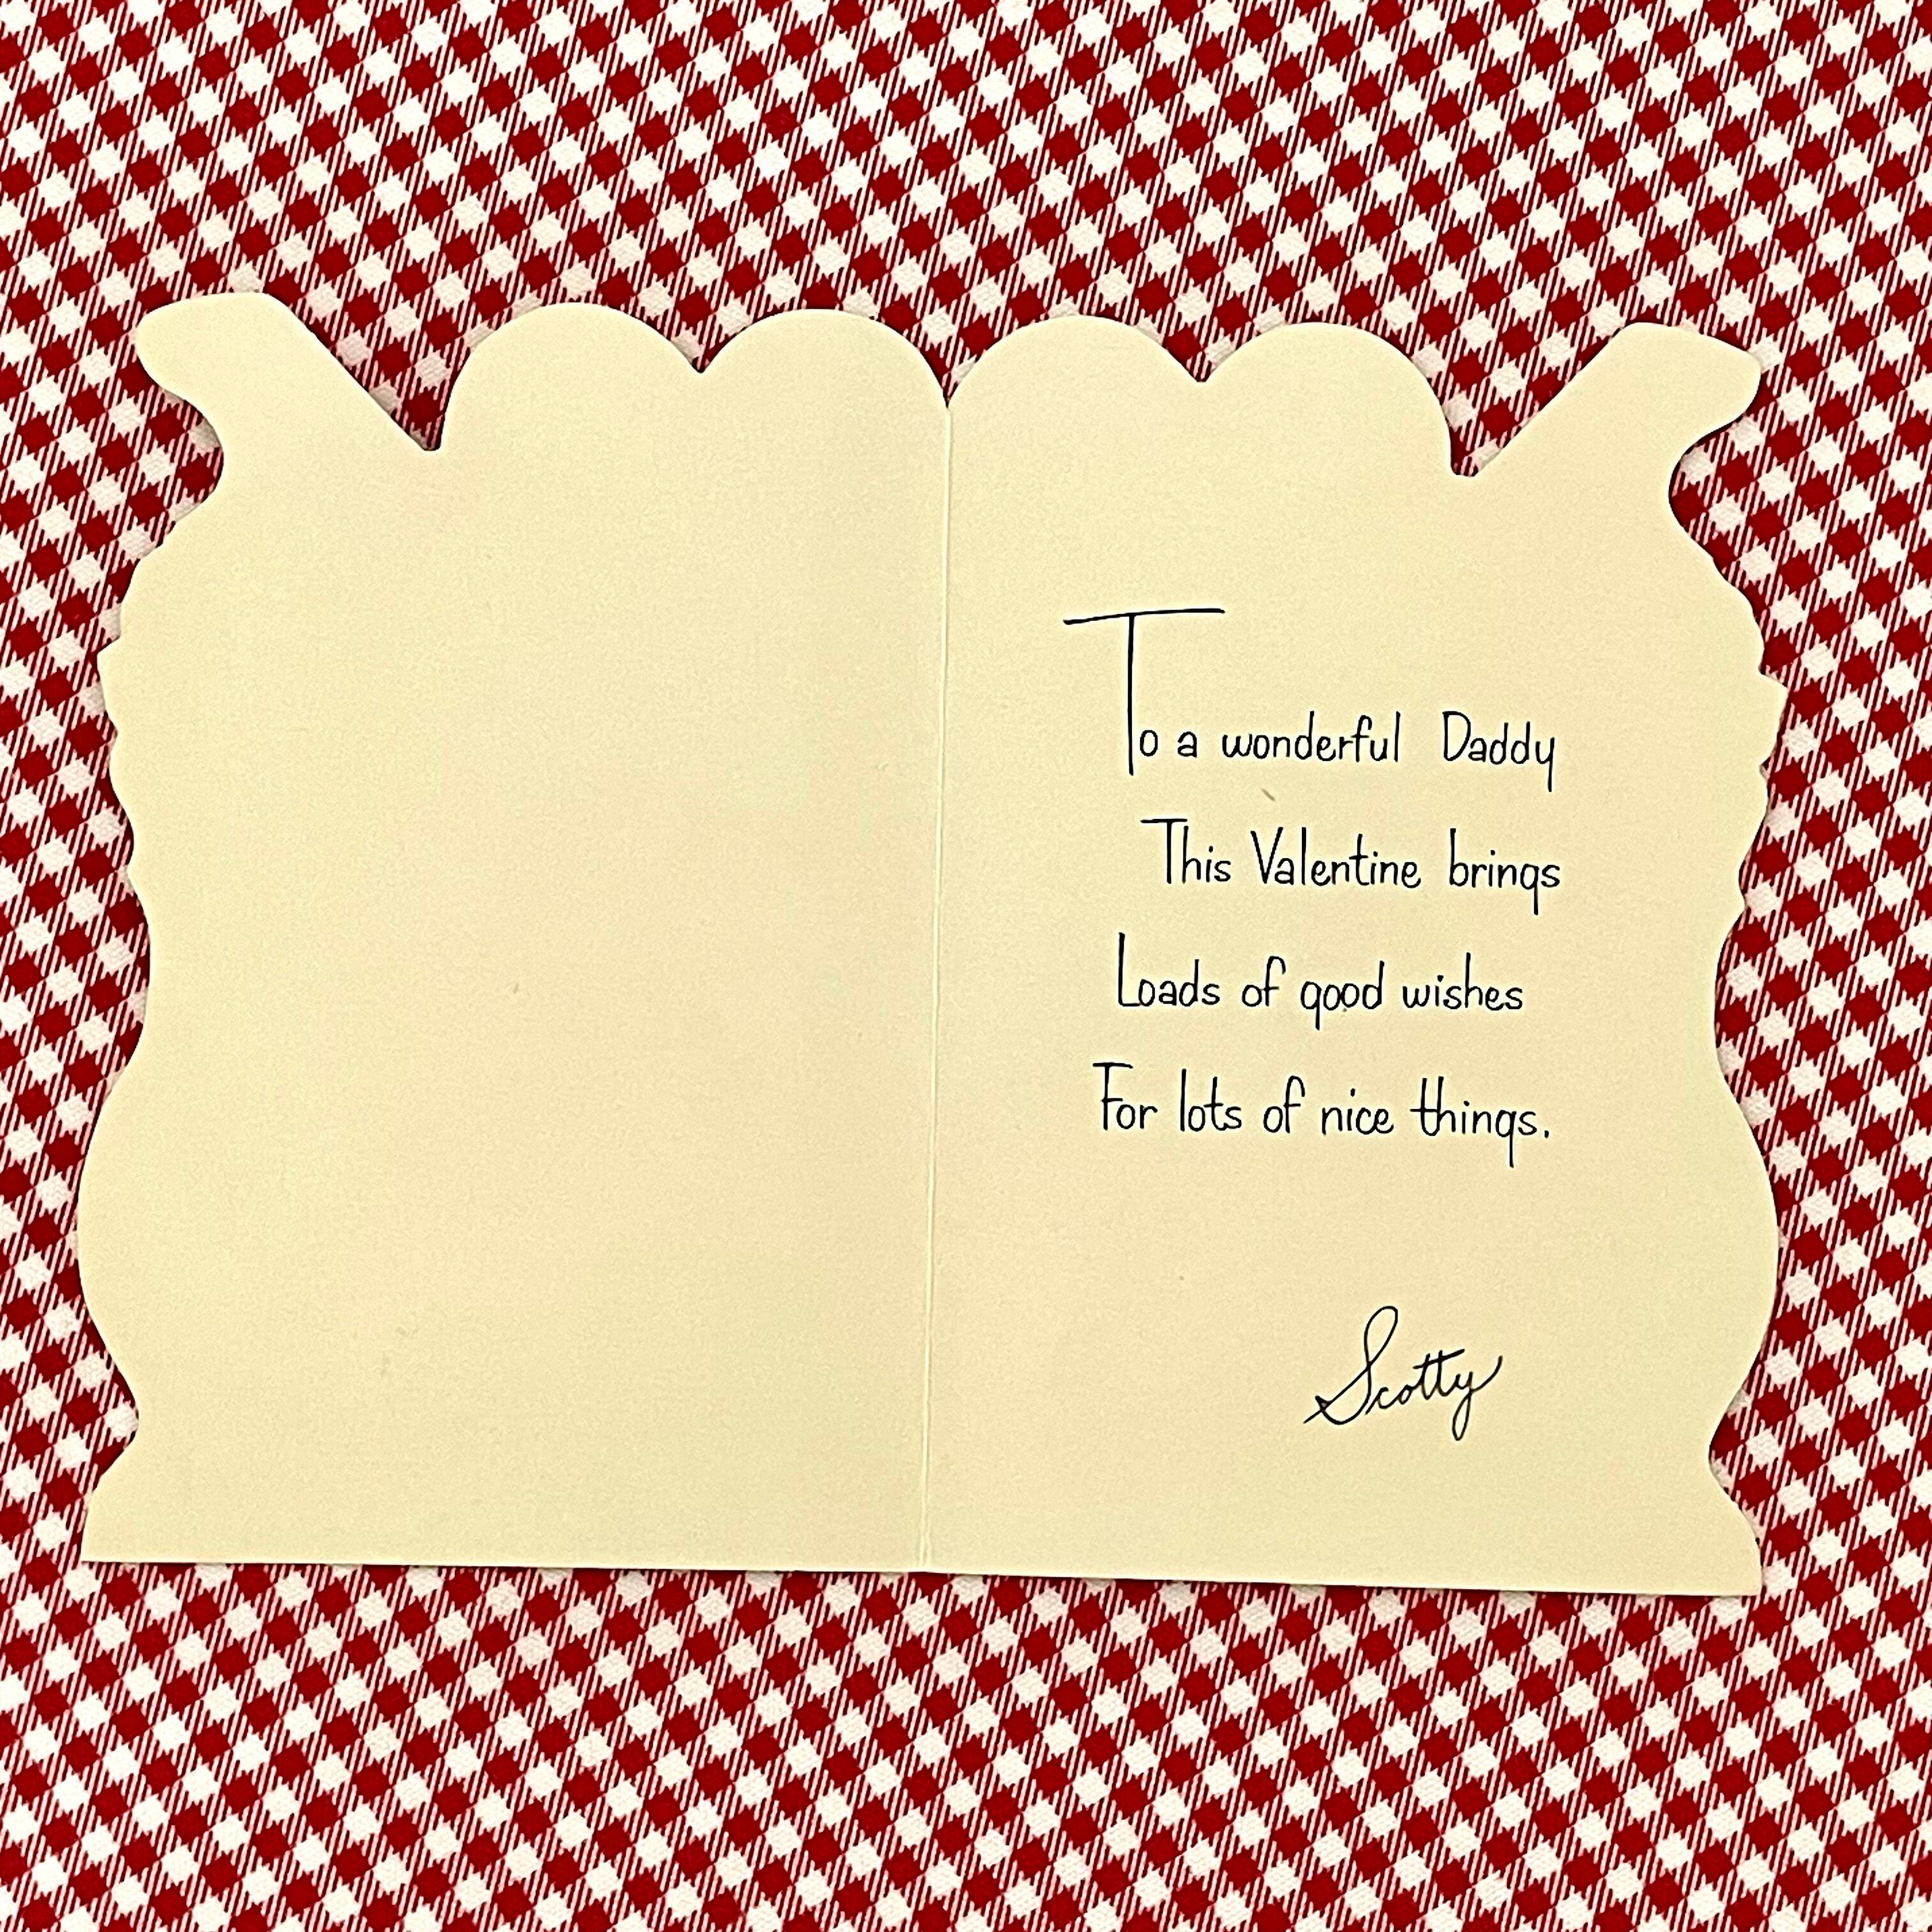 To a wonderful Daddy
This Valentine brings
Loads of good wishes
For lots of nice things.
Scotty